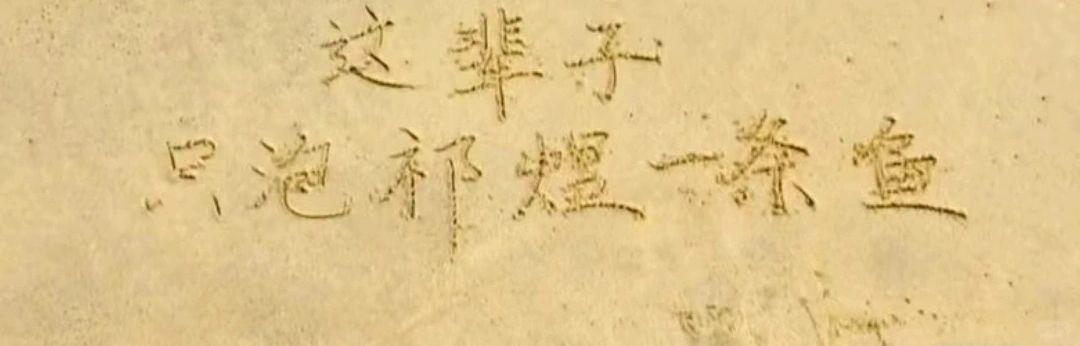 这辈子
只泡祁煜一条鱼